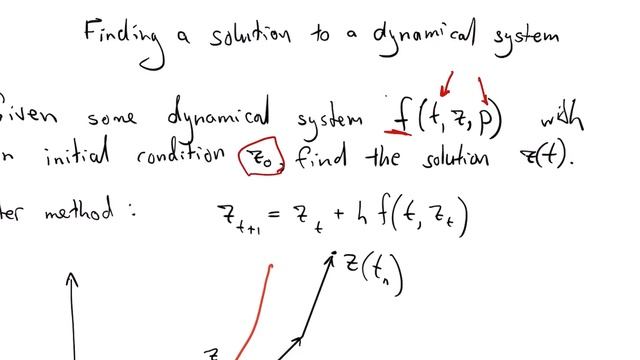 Finding a solution to a dynamical system
Given some dynamical system f(t, z, p) with
an initial condition z₀, find the solution z(t).
method : z_{t+1} = z_t + h f(t, z_t)
z(t_n)
z